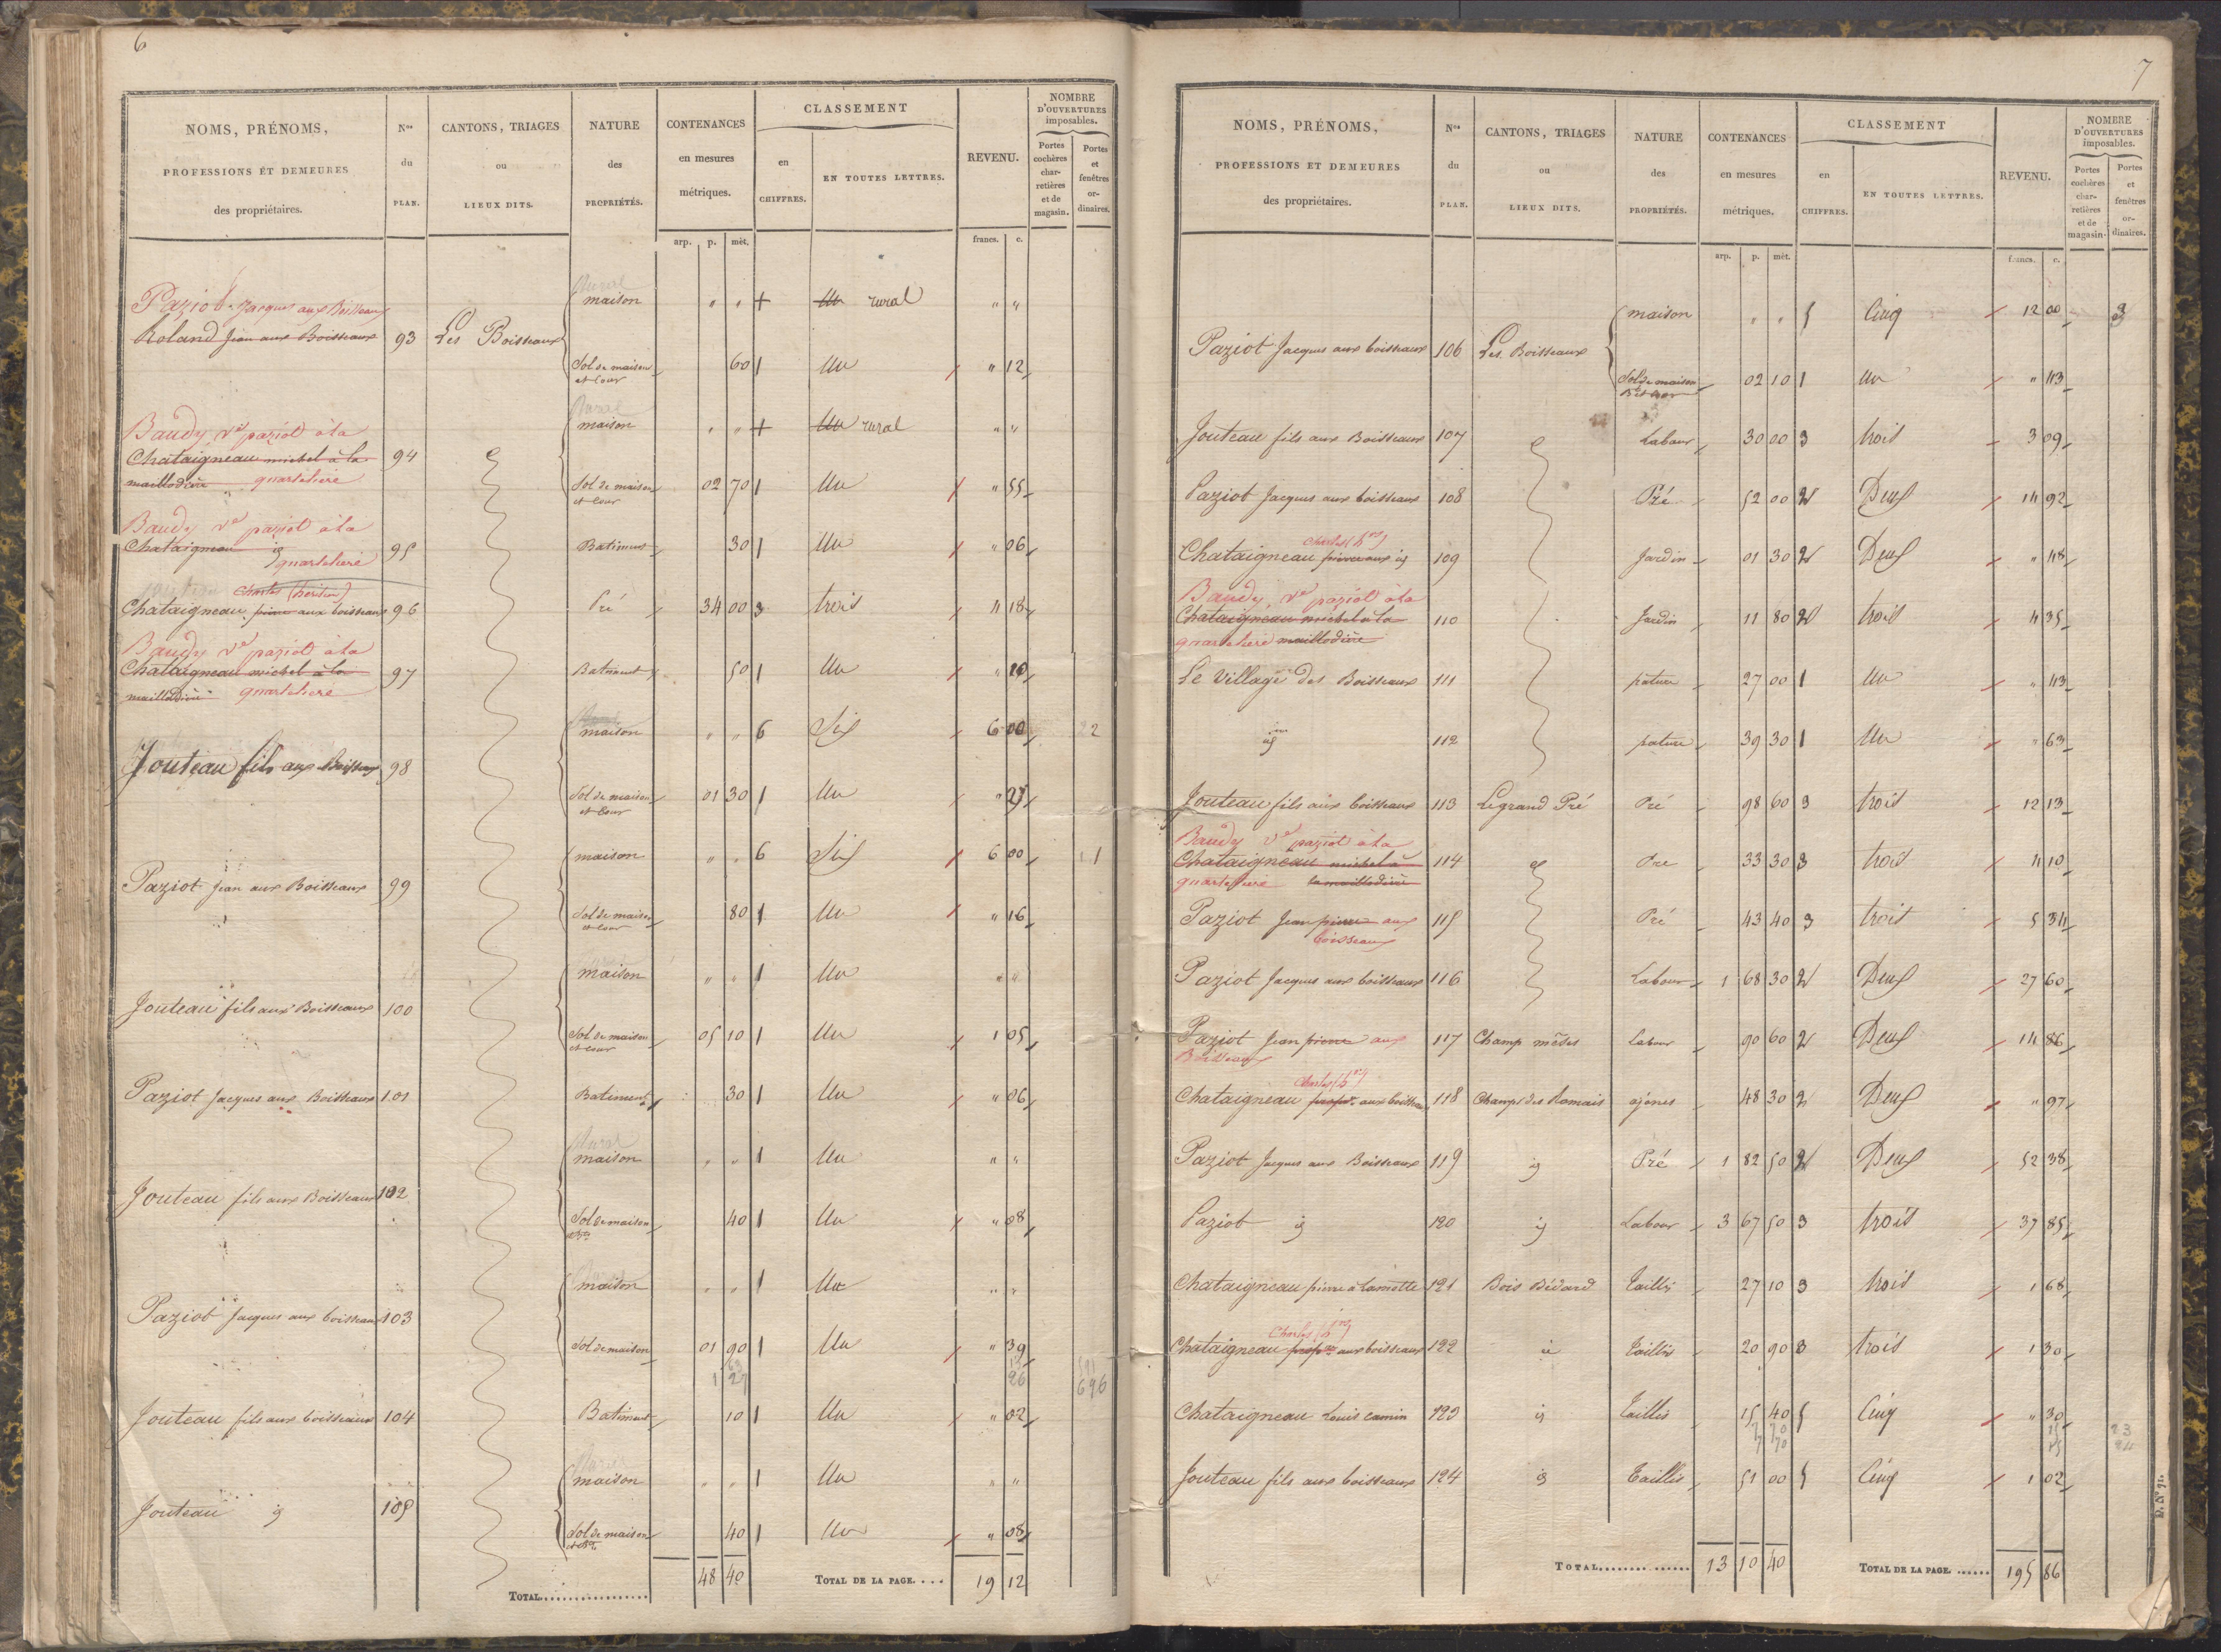 6
NOMS, PRÉNOMS,
PROFESSIONS ET DEMEURES
des propriétaires.
Nos
du
PLAN.
CANTONS, TRIAGES
ou
LIEUX DITS.
NATURE
des
PROPRIÉTÉS.
CONTENANCES
en mesures
métriques.
CLASSEMENT
en
CHIFFRES.
EN TOUTES LETTRES.
REVENU.
NOMBRE
D'OUVERTURES
imposables.
Portes
cochères
char-
retières
et de
magasin.
Portes
et
fenêtres
or-
dinaires.
arp. p. mèt. francs. c.
Rural
Paziot Jacques aux Boisseaux maison " " + Un rural " "
Roland Jean aux Boisseaux 93 Les Boisseaux
Sol de maison et Cour 60 1 Un " 12
Rural
Baudy ve paziot à la maison " " + Un rural " "
Chataigneau michel à la 94 id
maillodière quartelière Sol de maison et Cour 02 70 1 Un " 55
Baudy ve paziot à la
Chataigneau id 95 Batiment 30 1 Un " 06
quartelière
Charles (héritiers)
Chataigneau pierre aux boisseaux 96 Pré 34 00 3 trois 4 18
Baudy ve paziot à la
Chataigneau michel à la 97 Batiment 50 1 Un " 10
maillodière quartelière
maison " " 6 Six 6 00 2
Jouteau fils aux Boisseaux 98
Sol de maison et Cour 01 30 1 Un " 27
maison " " 6 Six 6 00 1
Paziot Jean aux Boisseaux 99
Sol de maison et Cour 80 1 Un " 16
maison " " 1 Un " "
Jouteau fils aux Boisseaux 100
Sol de maison et cour 05 10 1 Un 1 05
Paziot Jacques aux Boisseaux 101 Batiment 30 1 Un " 06
Rural
maison " " 1 Un " "
Jouteau fils aux Boisseaux 102
Sol de maison 40 1 Un " 08
maison " " 1 Un " "
Paziot Jacques aux boisseaux 103
Sol de maison 01 90 1 Un " 39
Jouteau fils aux boisseaux 104 Batiment 10 1 Un " 02
Rural
maison " " 1 Un " "
Jouteau id 105
Sol de maison 40 1 Un " 08
TOTAL 48 40 TOTAL DE LA PAGE.... 19 12
7
NOMS, PRÉNOMS,
PROFESSIONS ET DEMEURES
des propriétaires.
Nos
du
PLAN.
CANTONS, TRIAGES
ou
LIEUX DITS.
NATURE
des
PROPRIÉTÉS.
CONTENANCES
en mesures
métriques.
CLASSEMENT
en
CHIFFRES.
EN TOUTES LETTRES.
REVENU.
NOMBRE
D'OUVERTURES
imposables.
Portes
cochères
char-
retières
et de
magasin.
Portes
et
fenêtres
or-
dinaires.
arp. p. mèt. francs. c.
maison " " 5 Cinq 12 00 3
Paziot Jacques aux boisseaux 106 Les Boisseaux
Sol de maison 02 10 1 Un " 43
Jouteau fils aux Boisseaux 107 id Labour 30 00 3 trois 3 09
Paziot Jacques aux boisseaux 108 Pré 52 00 2 Deux 14 92
Charles (hers)
Chataigneau pierre aux id 109 Jardin 01 30 2 Deux " 48
Baudy ve paziot à la
Chataigneau michel à la 110 Jardin 11 80 2 trois 4 35
quartelière maillodière
Le Village des Boisseaux 111 pature 27 00 1 Un " 43
idem 112 pature 39 30 1 Un " 63
Jouteau fils aux boisseaux 113 Legrand Pré Pré 98 60 3 trois 12 13
Baudy ve paziot à la
Chataigneau michel à 114 id Pre 33 30 3 trois 4 10
quartelière la maillodière
Paziot Jean pierre aux 115 Pré 43 40 3 trois 5 34
boisseaux
Paziot Jacques aux boisseaux 116 Labour 1 68 30 2 Deux 27 60
Paziot Jean pierre aux 117 Champ mêdes Labour 90 60 2 Deux 14 86
Boisseaux
Charles (hers)
Chataigneau aux boisseaux 118 Champ des Romais ajoncs 48 30 2 Deux " 97
Paziot Jacques aux Boisseaux 119 id Pré 1 82 50 2 Deux 52 38
Paziot id 120 id Labour 3 67 50 3 trois 37 85
Chataigneau pierre à Lamotte 121 Bois Bédard Taillis 27 10 3 trois 1 68
Charles (hers)
Chataigneau aux boisseaux 122 id Taillis 20 90 3 trois 1 30
Chataigneau Louis camin 123 id Taillis 15 40 5 Cinq " 30
Jouteau fils aux boisseaux 124 id Taillis 51 00 5 Cinq 1 02
TOTAL 13 10 40 TOTAL DE LA PAGE 195 86